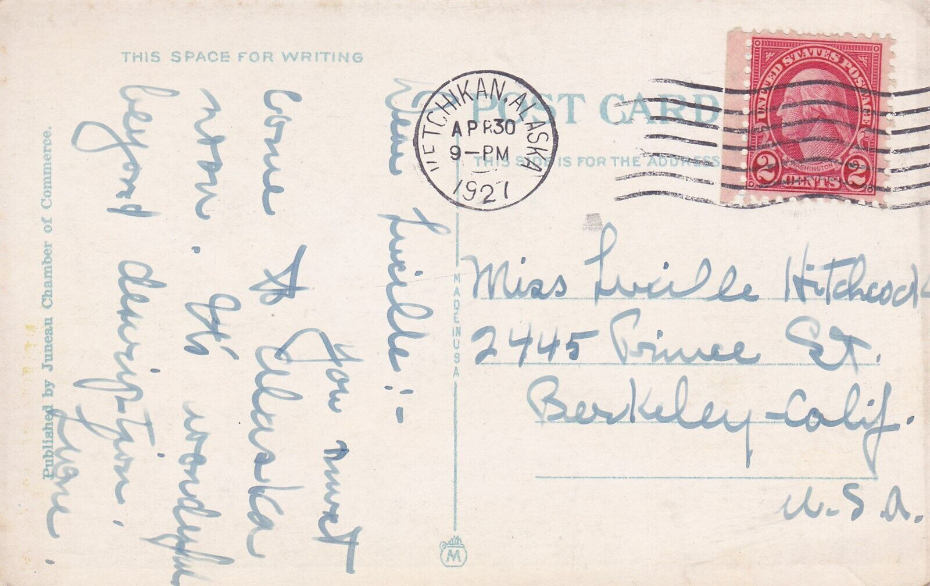 THIS SPACE FOR WRITING
POST CARD
THIS SIDE IS FOR THE ADDRESS
KETCHIKAN, ALASKA
APR 30
9-PM
1927
UNITED STATES POSTAGE
WASHINGTON
2 CENTS 2
Dear Lucille:-
You must
Come to Alaska
now. It's wonderful
beyond description.
Miss Lucille Hitchcock
2445 Prince St.
Berkeley-Calif.
U.S.A.
MADE IN USA
M
Published by Juneau Chamber of Commerce.